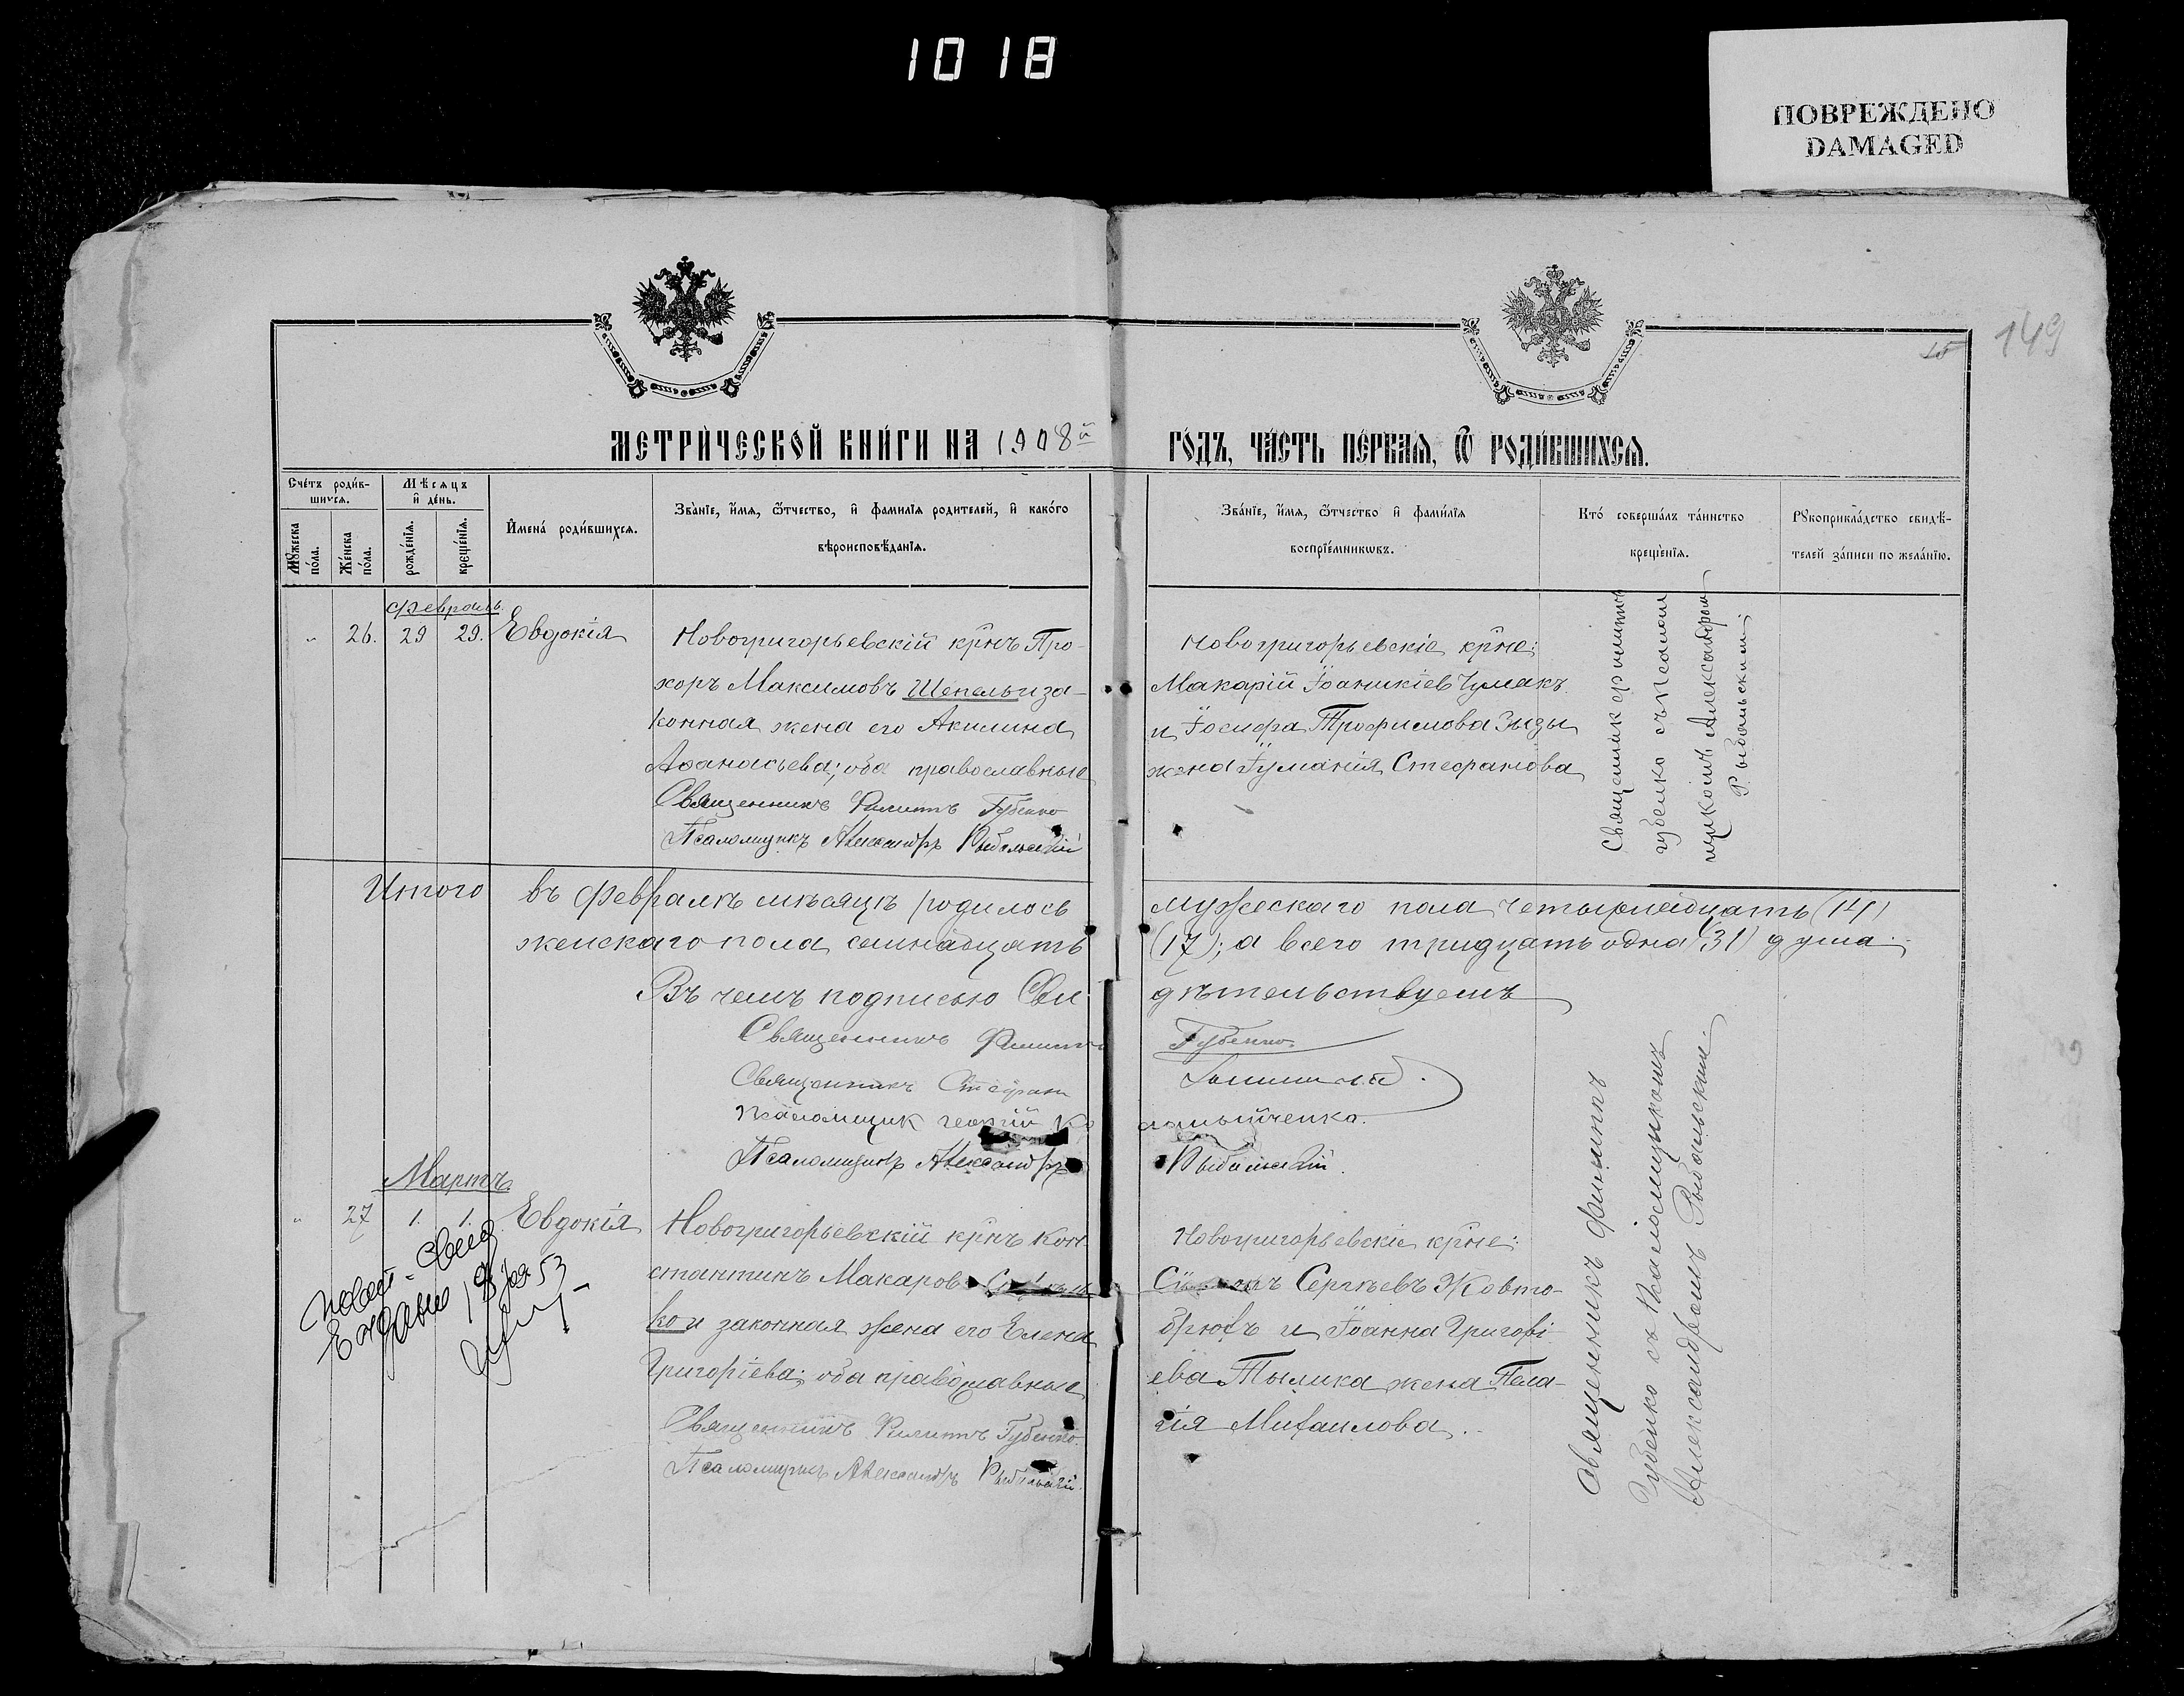 1018
ПОВРЕЖДЕНО
DAMAGED
149
15
МЕТРИ́ЧЕСКОЙ КНИ́ГИ НА 1908й
ГО́ДЪ, ЧА́СТЬ ПЕ́РВАѦ, Ѿ РОДИ́ВШИХСѦ.
Сче́тъ роди́в-
шихсѧ.
Мѣ́сѧцъ
и҆ де́нь.
Мꙋ́жеска
по́ла.
Же́нска
по́ла.
рожде́нїѧ.
креще́нїѧ.
И҆мена̀ роди́вшихсѧ.
Зва́нїе, и҆́мѧ, ѻ҆́тчество, и҆ фами́лїѧ роди́телей, и҆ како́го
вѣроисповѣ́данїѧ.
Зва́нїе, и҆́мѧ, ѻ҆́тчество и҆ фами́лїѧ
воспрїе́мникѡвъ.
Кто̀ соверша́лъ та́инство
креще́нїѧ.
Рꙋкоприкла́дство свидѣ́-
телей за́писи по жела́нїю.
Февраль.
" 26. 29 29. Евдокія
Новогригорьевскій крнъ Про-
хоръ Максимовъ Шепель и за-
конная жена его Акилина
Аѳанасьева; оба православные
Священникъ Филиппъ Губенко
Псаломщикъ Александръ Рыбальскій
Новогригорьевскіе крне:
Макарій Іоаникіев Чумакъ
и Іосифа Трофимова Зызы
жена Іуманія Стефанова
Священник Филиппъ
Губенко съ Псалом
щикомъ Александром
Рыбальским
Итого въ Февралѣ мѣсяцѣ родилось мужескаго пола четырнадцать (14)
женскаго пола семнадцать (17); а всего тридцать одна (31) душа.
Въ чемъ подписью Сви дѣтельствуемъ
Священникъ Филиппъ Губенко.
Священникъ Стефан
Псаломщик Георгій
Псаломщикъ Александръ Рыбальскій.
Мартъ.
" 27 1. 1. Евдокія
Новогригорьевскій крнъ Кон-
стантинъ Макаровъ
ко и законная жена его Елена
Григоріева; оба православные
Священникъ Филиппъ Губенко.
Псаломщикъ Александръ Рыбальскій.
Новогригорьевскіе крне:
Сергѣевъ Жовто-
брюхъ и Іоанна Григорі-
ева Тылика жена Пела-
гія Михаилова.
Священникъ Филиппъ
Губенко съ Псаломщикомъ
Александромъ Рыбальскимъ.